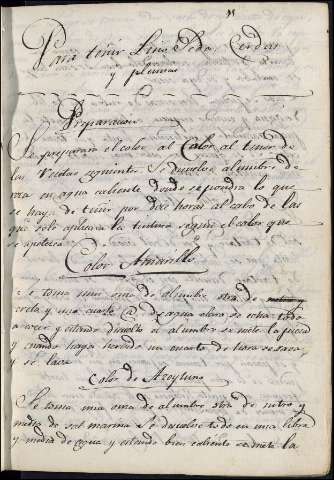 Para teñir Lino Seda, Cerdas
y plumas
Preparacion
Se preparará el color al Calor al tenor de
las Recetas siguientes. Se disuelve alumbre de
roca en agua caliente donde se pondra lo que
se haya de teñir por doce horas al cabo de las
que solo aplicara la tintura segun el color que
se apetezca
Color Amarillo
Se toma una onza de alumbre otra de
creta y una cuarta de agua clara se echa todo
a cocer y estando disuelto el alumbre se mete la pieza
y cuando haya hervido un cuarto de hora se saca,
y se lava
Color de Azeytuna
Se toma una onza de alumbre, otra de nitro y
media de sal marina se disuelve todo en una libra
y media de agua y estando bien caliente se mete la